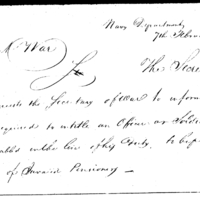 Navy Department
7th Febru
of War
The Secre
the Secretary of War to inform
required to entitle an Officer or
in the line of duty, to be
of Invalid Pensions —